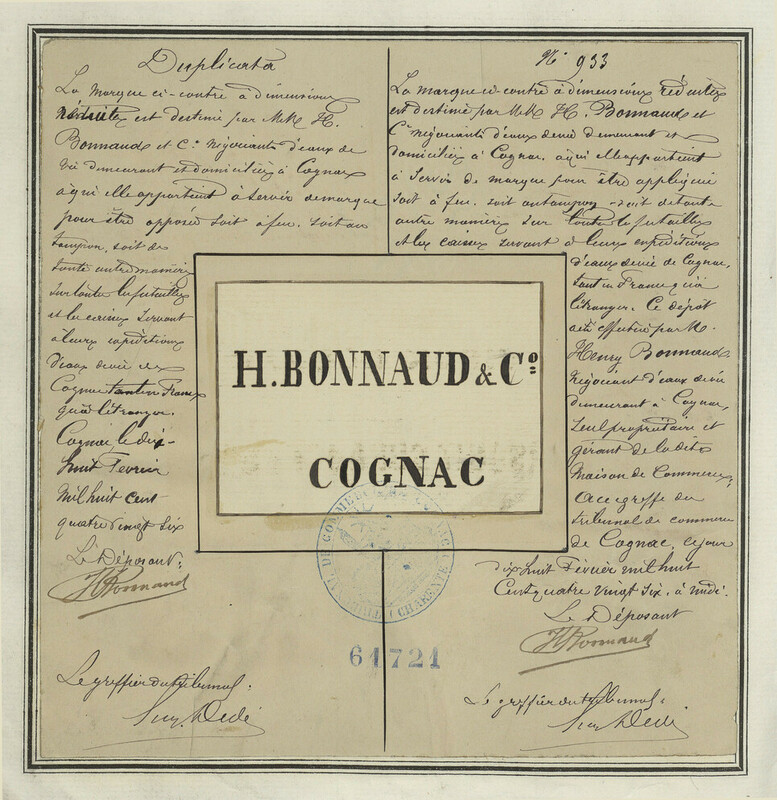 Duplicata
La marque ci-contre à dimensions
réduites est destiné par M.M. H.
Bonnaud et Cie négociants d'eaux de
vie demeurant et domiciliés à Cognac
à qui elle appartient à servir de marque
pour être apposée soit à feu, soit au
tampon, soit de
toute autre manière
sur toutes les futailles
et les caisses servant
à leurs expéditions
d'eaux de vie de
Cognac tant en France
qu'à l'étranger.
Cognac le dix-
huit Février
mil huit cent
quatre vingt six
Le Déposant:
H Bonnaud
Le greffier du Tribunal:
N° 933
La marque ci-contre à dimensions réduites
est destinée par M.M. H. Bonnaud et
Cie négociants d'eaux de vie demeurant et
domiciliés à Cognac, à qui elle appartient
à servir de marque pour être appliquée
soit à feu, soit au tampon, soit de toute
autre manière sur toutes les futailles
et les caisses servant à leurs expéditions
d'eaux de vie de Cognac,
tant en France qu'à
l'étranger. Ce dépôt
a été effectué par M.
Henry Bonnaud
négociant d'eaux de vie
demeurant à Cognac,
seul propriétaire et
gérant de la dite
Maison de Commerce,
au greffe du
tribunal de commerce
de Cognac, ce jour
dix huit Février mil huit
cent quatre vingt six, à midi.
Le Déposant
H Bonnaud
Le greffier du tribunal:
H. BONNAUD & Co
COGNAC
61721